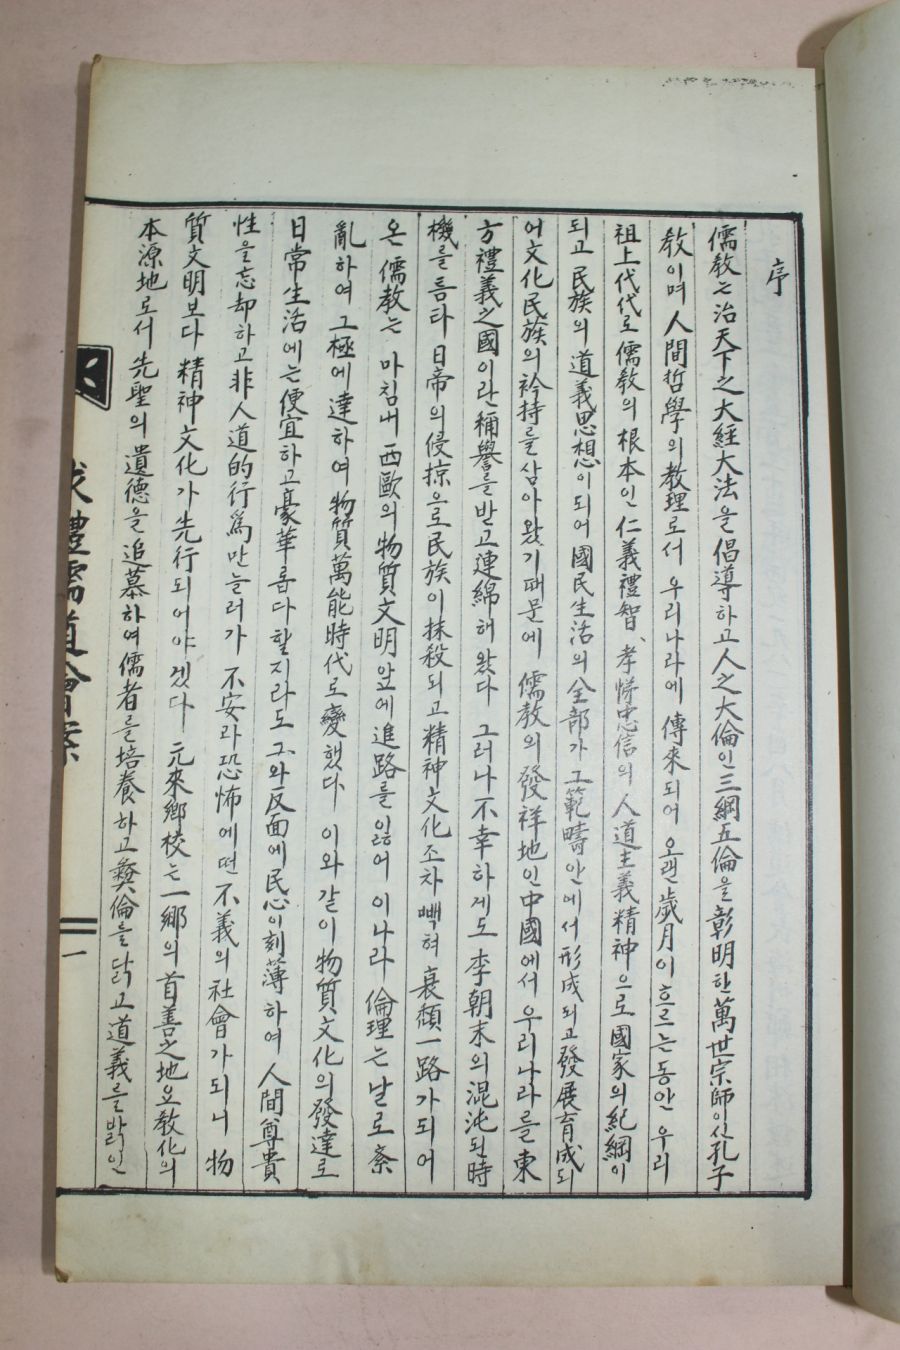 序
儒敎는 治天下之大經大法을 倡導하고 人之大倫인 三綱五倫을 彰明한 萬世宗師이신 孔子
敎이며 人間哲學의 敎理로서 우리나라에 傳來되어 오랜 歲月이 흐르는동안 우리
祖上代代로 儒敎의 根本인 仁義禮智、孝悌忠信의 人道主義精神으로 國家의 紀綱이
되고 民族의 道義思想이 되어 國民生活의 全部가 그 範疇안에서 形成되고 發展育成되
어 文化民族의 衿持를 삼아왔기때문에 儒敎의 發祥地인 中國에서 우리나라를 東
方禮義之國이란 稱譽를 받고 連綿해 왔다 그러나 不幸하게도 李朝末의 混沌된 時
機를 틈타 日帝의 侵掠으로 民族이 抹殺되고 精神文化조차 빼혀 衰頹一路가 되어
온 儒敎는 마침내 西歐의 物質文明앞에 進路를 잃어 이나라 倫理는 날로 紊
亂하여 그 極에 達하여 物質萬能時代로 變했다 이와같이 物質文化의 發達로
日常生活에는 便宜하고 豪華롭다 할지라도 그와 反面에 民心이 刻薄하여 人間尊貴
性을 忘却하고 非人道的行爲만 늘러가 不安과 恐怖에 떤 不義의 社會가 되니 物
質文明보다 精神文化가 先行되어야겠다 元來鄕校는 一鄕의 首善之地요 敎化의
本源地로서 先聖의 遺德을 追慕하여 儒者를 培養하고 彛倫를 닭고 道義를 밝힌
求禮儒道會案
一